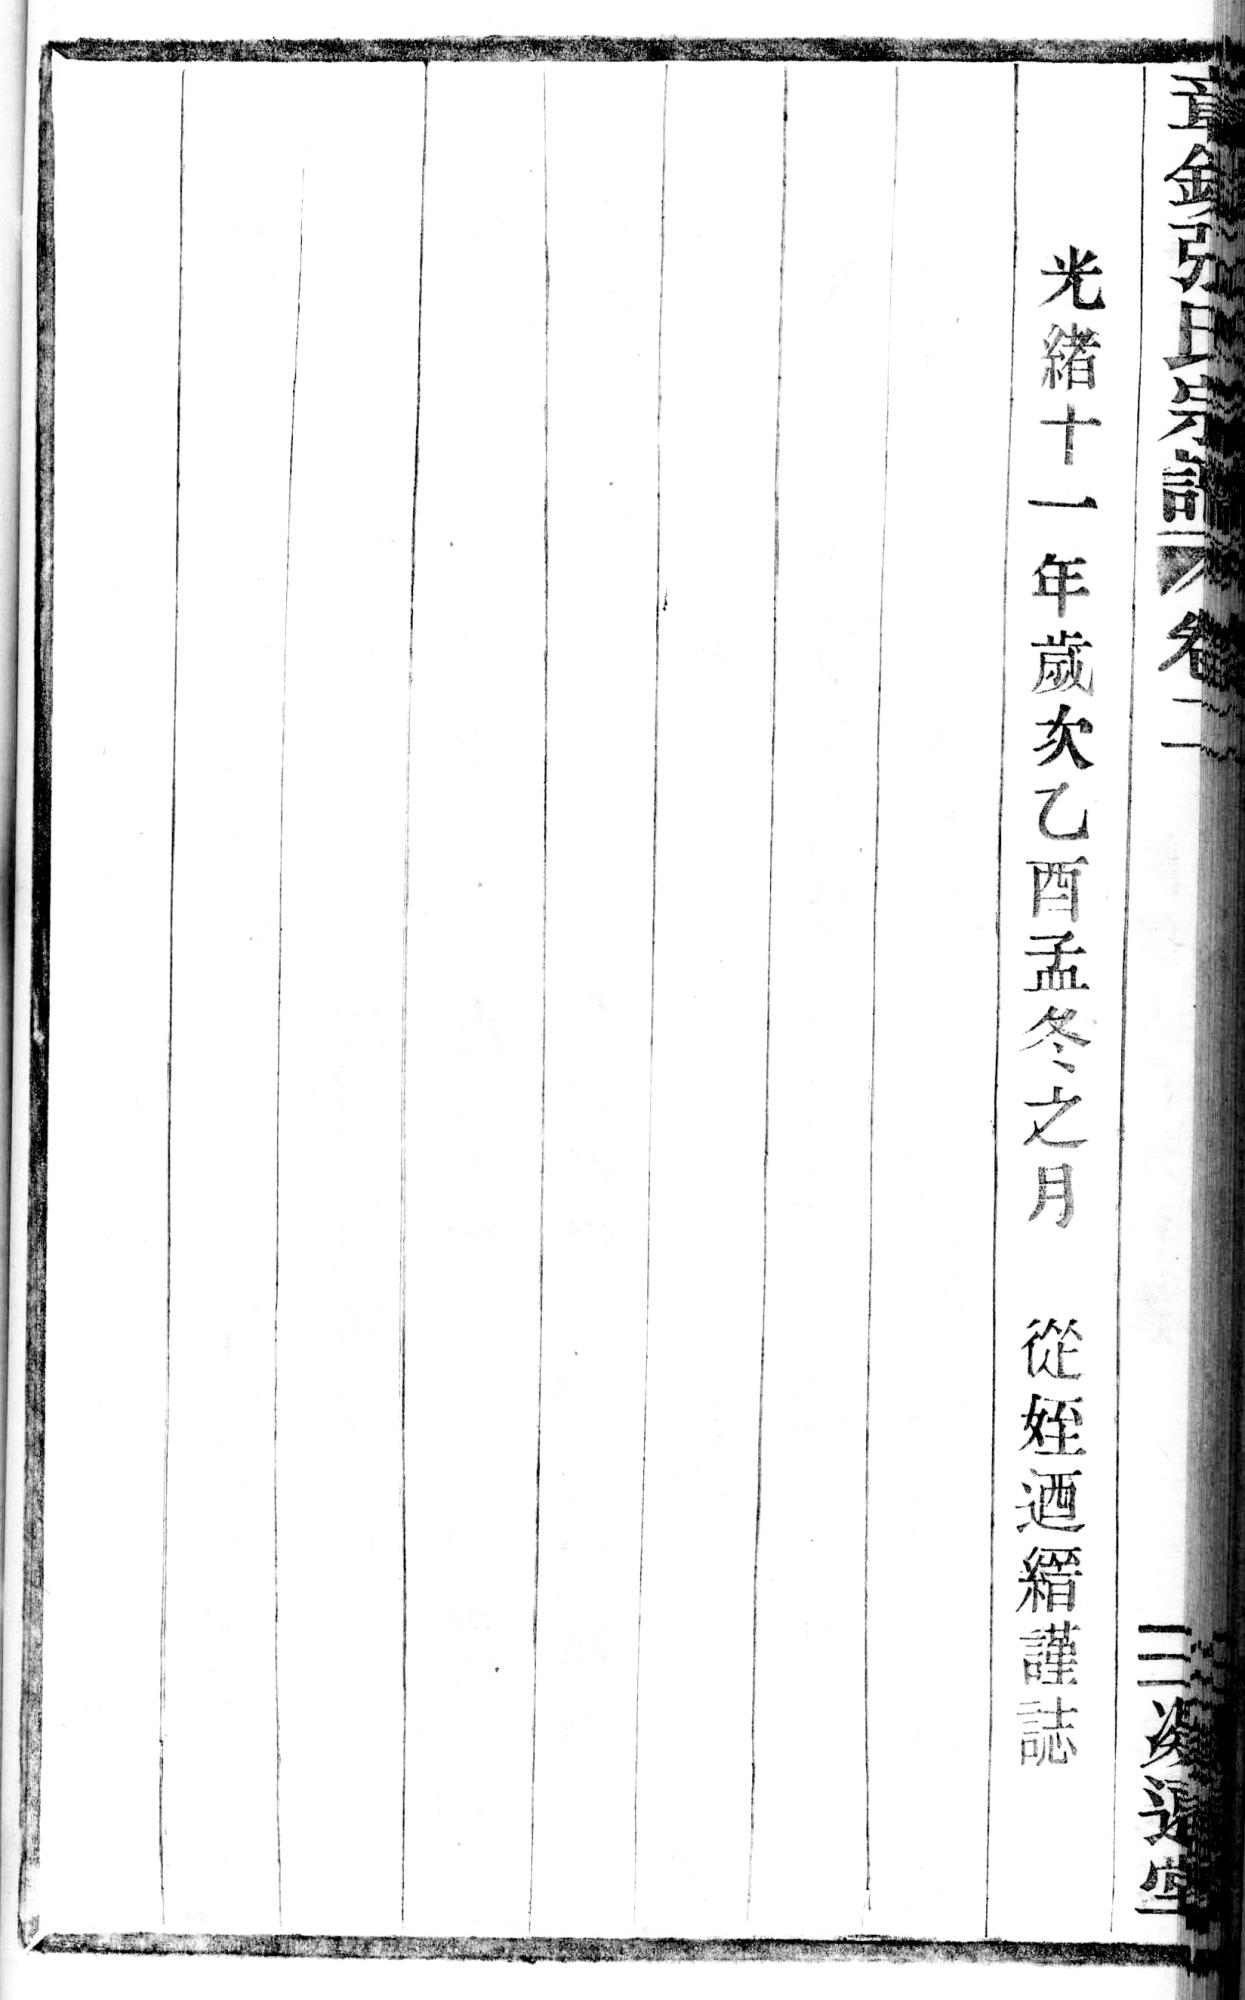 張氏宗譜 卷二
光緒十一年歲次乙酉孟冬之月 從姪迺縉謹誌